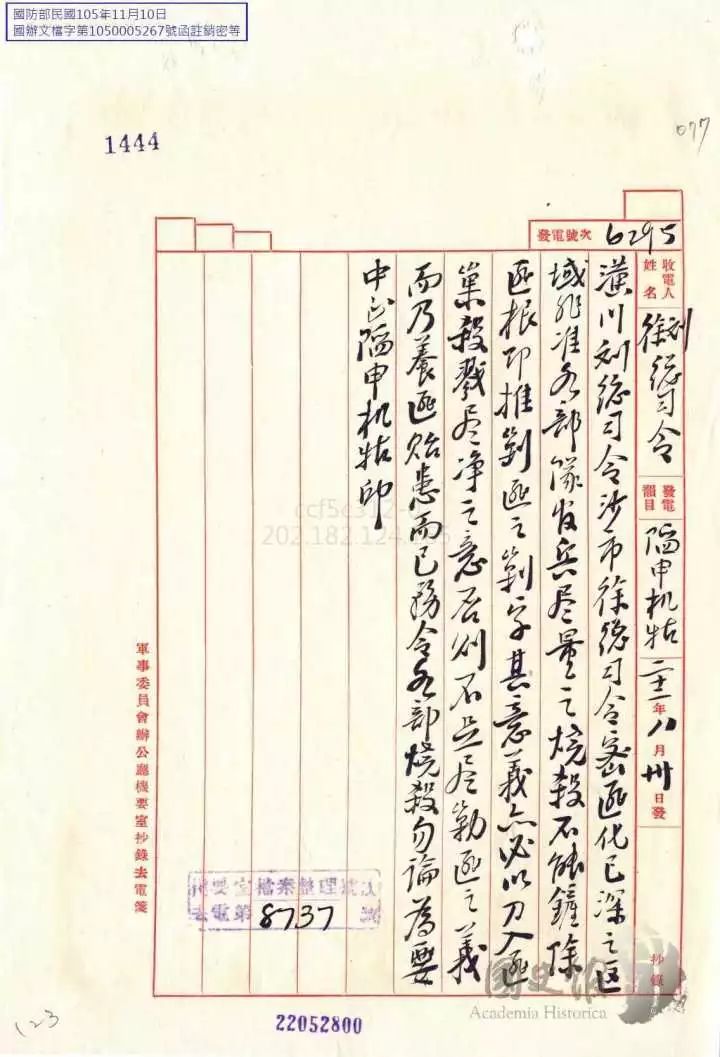 國防部民國105年11月10日
國辦文檔字第1050005267號函註銷密等
1444
077
發電號次 6295
收電人姓名 劉徐總司令
發電韻目 陷申机牯 二十一年八月卅日發
抄錄
潢川刘總司令沙市徐總司令密匪化已深之區
域非准各部隊发兵尽量之燒殺不能鏟除
匪根即推剿匪之剿字其意義亦必以刀入匪
巢殺戮尽净之意否则不足尽勦匪之義
而乃養匪貽患而已務令各部燒殺勿論為要
中正陷申机牯印
軍事委員會辦公廳機要室抄錄去電箋
機要室檔案整理號次
去電第8737號
ccf5c312-
202.182.124.
國史館
Academia Historica
22052800
123